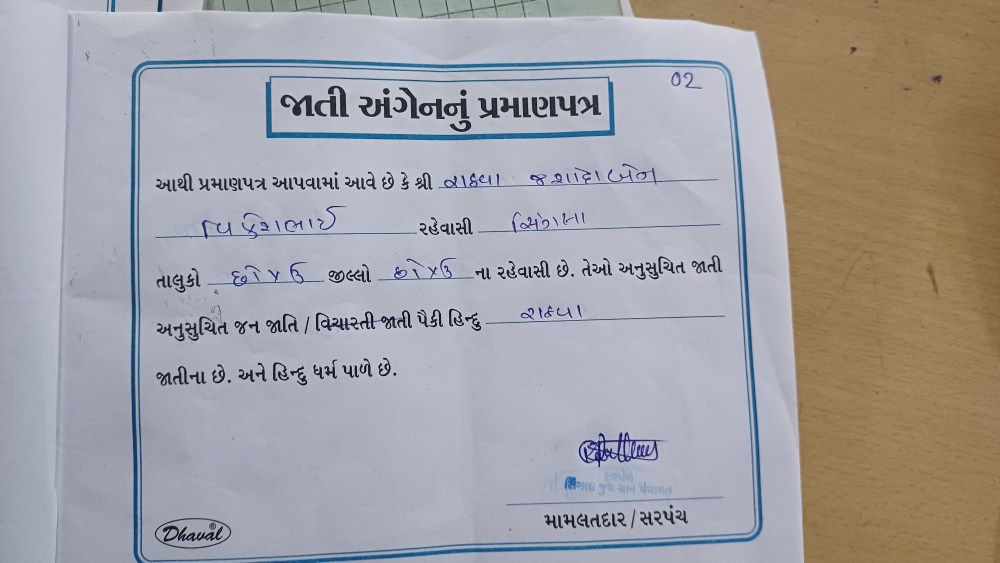 02
જાતી અંગેનનું પ્રમાણપત્ર
આથી પ્રમાણપત્ર આપવામાં આવે છે કે શ્રી રાઠવા જશોદાબેન
રહેવાસી સિંગલા
તાલુકો છો×ઉ જીલ્લો છો×ઉ ના રહેવાસી છે. તેઓ અનુસુચિત જાતી
અનુસુચિત જન જાતિ / વિચારતી જાતી પૈકી હિન્દુ રાઠવા
જાતીના છે. અને હિન્દુ ધર્મ પાળે છે.
સરપંચ
સિંગલા જુથ ગ્રામ પંચાયત
મામલતદાર / સરપંચ
Dhaval®